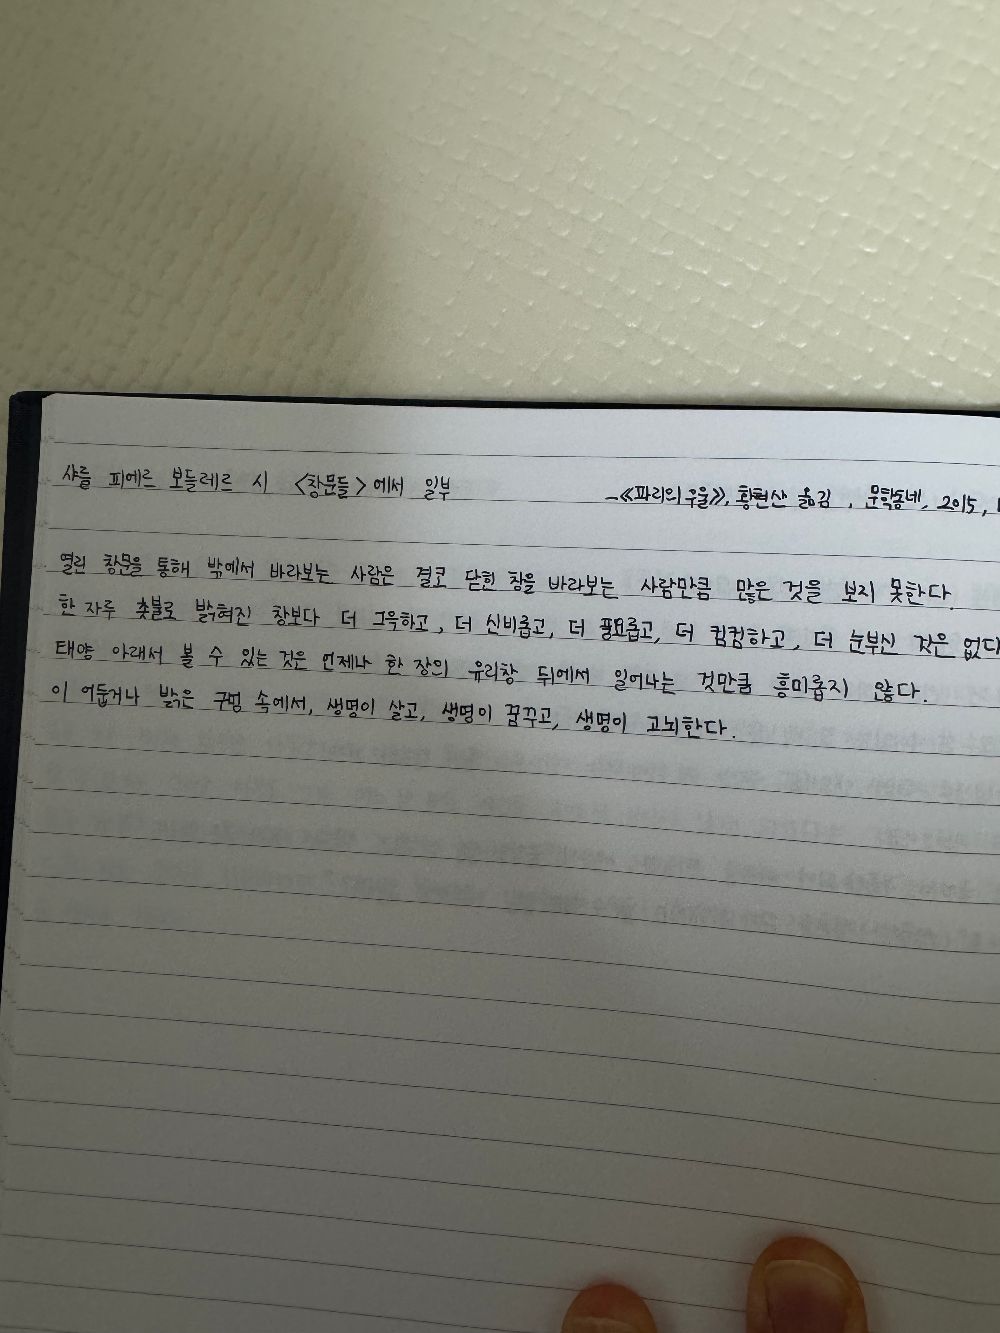 샤를 피에르 보들레르 시 <창문들>에서 일부 -《파리의 우울》, 황현산 옮김, 문학동네, 2015,
열린 창문을 통해 밖에서 바라보는 사람은 결코 닫힌 창을 바라보는 사람만큼 많은 것을 보지 못한다.
한 자루 촛불로 밝혀진 창보다 더 그윽하고, 더 신비롭고, 더 풍요롭고, 더 컴컴하고, 더 눈부신 것은 없다
태양 아래서 볼 수 있는 것은 언제나 한 장의 유리창 뒤에서 일어나는 것만큼 흥미롭지 않다.
이 어둡거나 밝은 구멍 속에서, 생명이 살고, 생명이 꿈꾸고, 생명이 고뇌한다.